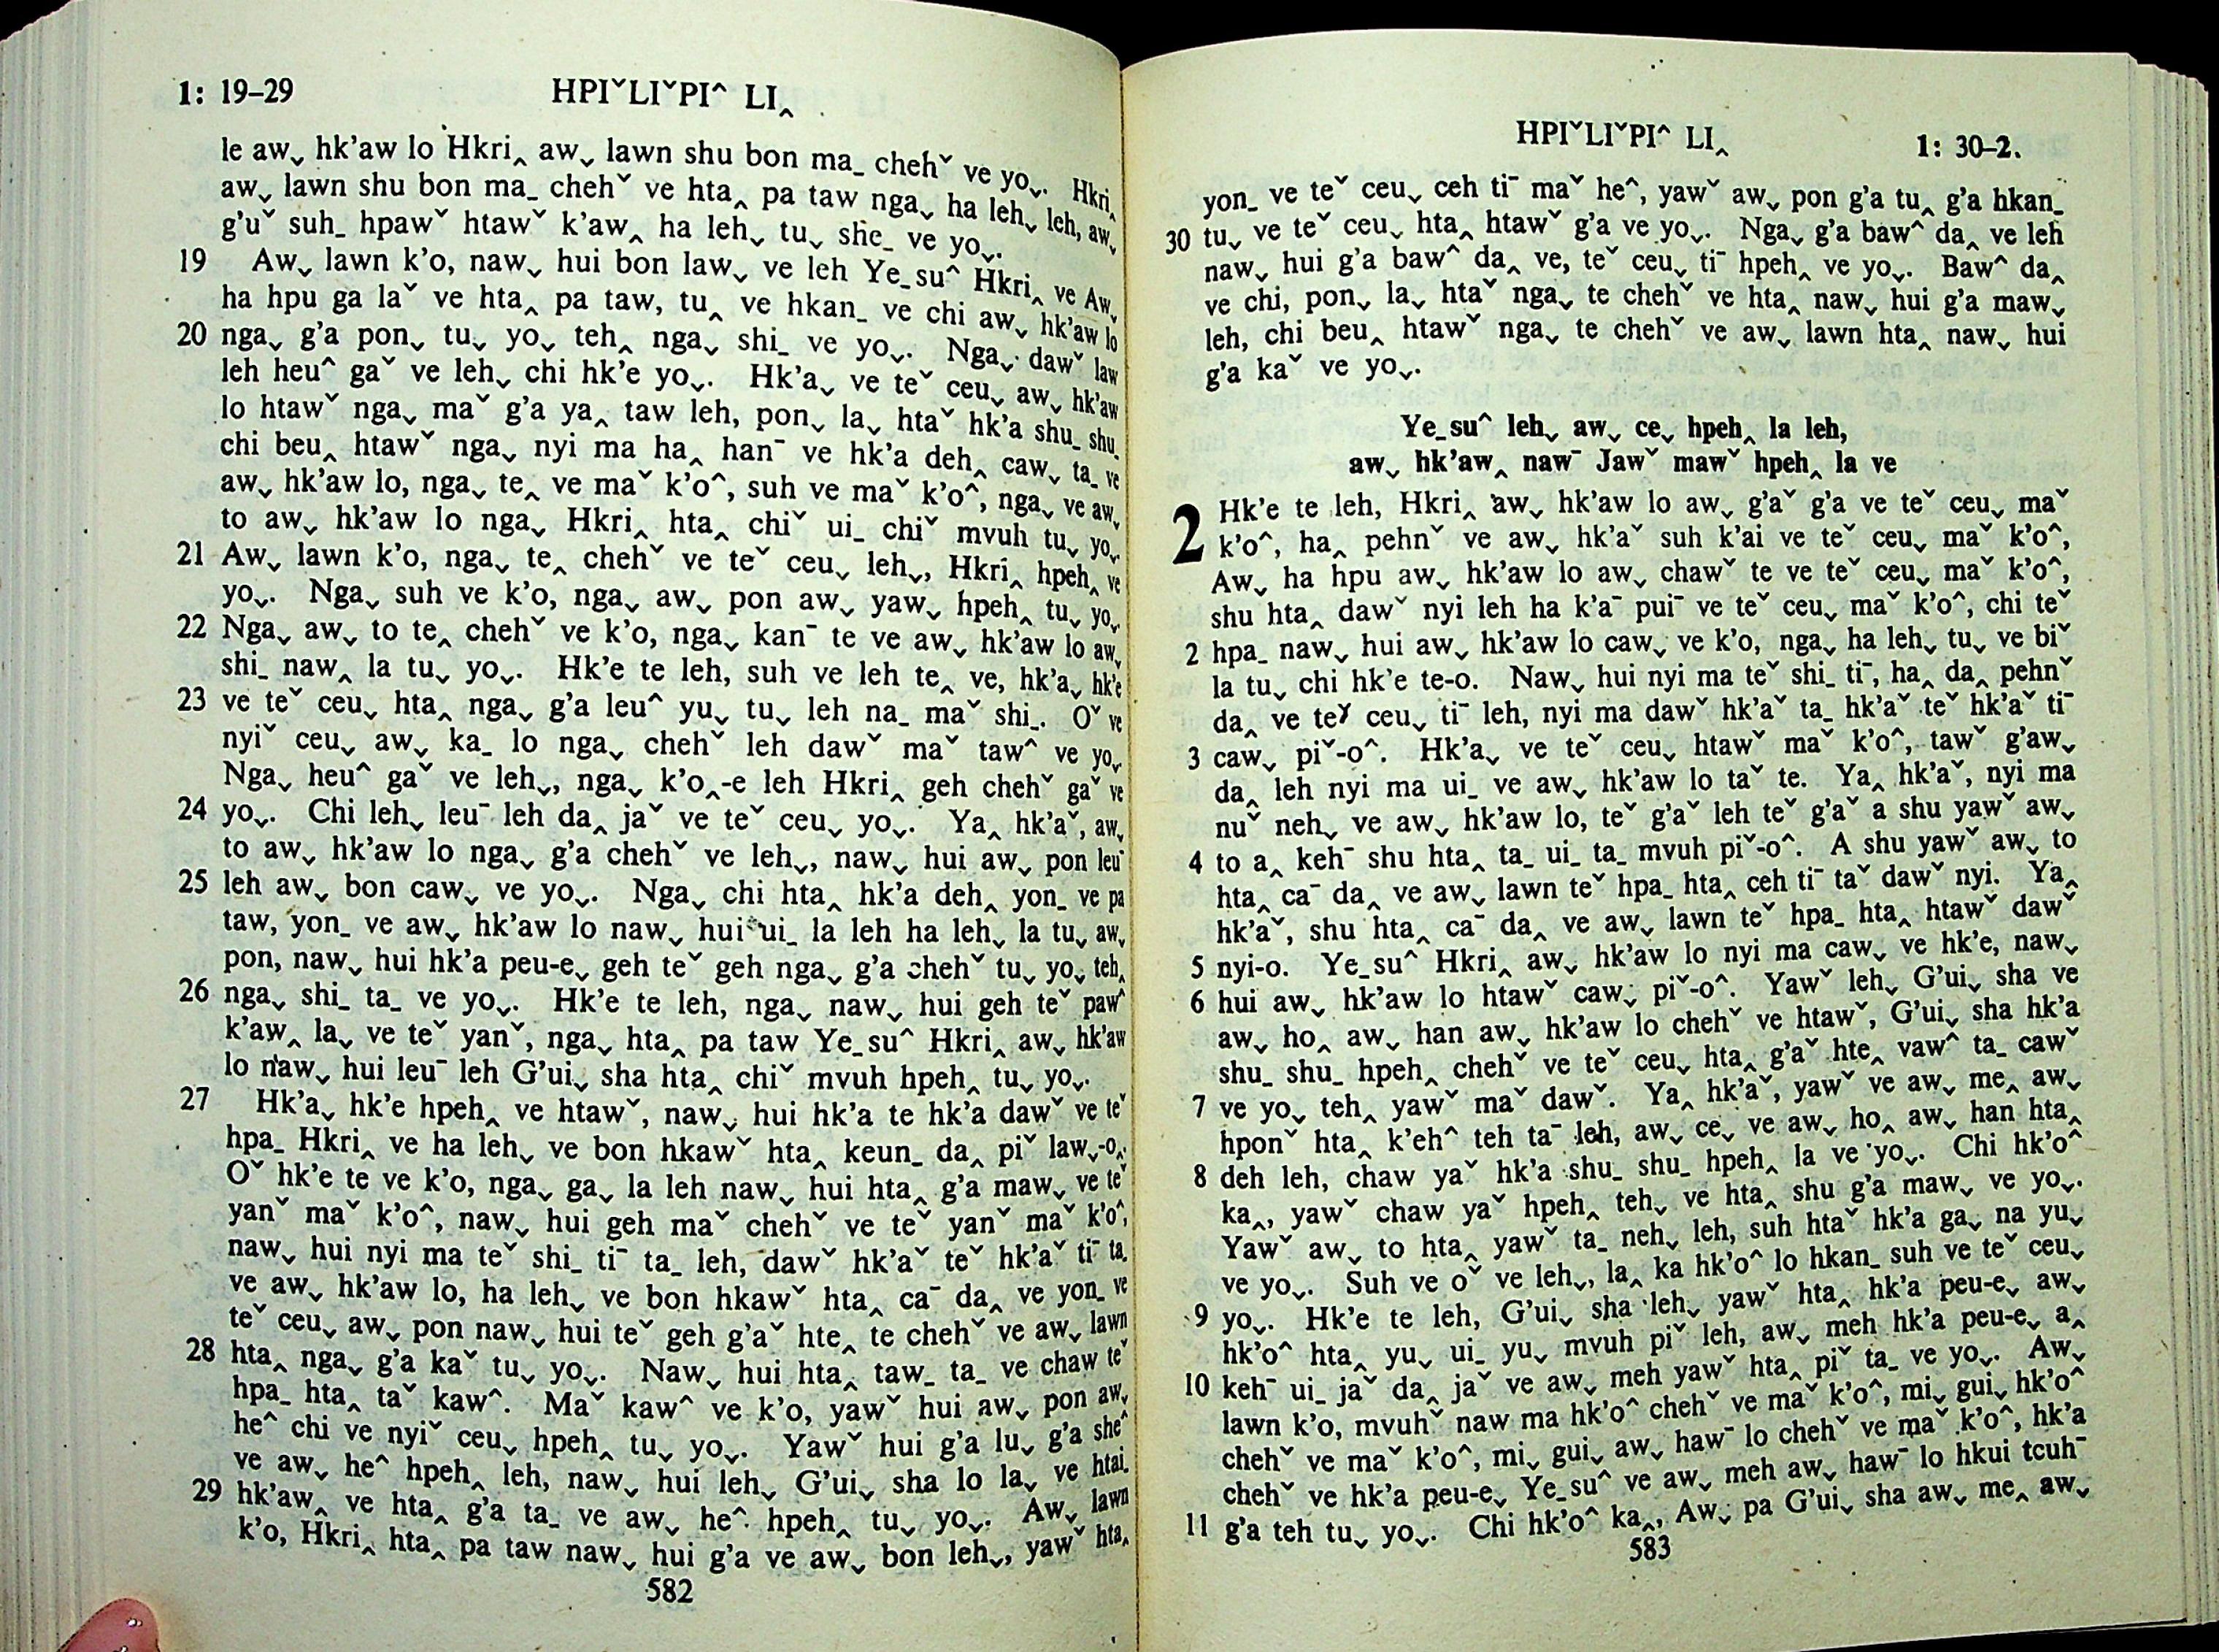 1: 19–29
HPIˇLIˇPI^ LI‸
le aw˯ hk’aw lo Hkri‸ aw˯ lawn shu bon ma_ chehˇ ve yo˯. Hkri‸
aw˯ lawn shu bon ma_ chehˇ ve hta‸ pa taw nga˯ ha leh˯ leh, aw˯
g’uˇ suh_ hpawˇ htawˇ k’aw‸ ha leh˯ tu˯ she_ ve yo˯.
19 Aw˯ lawn k’o, naw˯ hui bon law˯ ve leh Ye_su^ Hkri‸ ve Aw˯
ha hpu ga laˇ ve hta‸ pa taw, tu‸ ve hkan_ ve chi aw˯ hk’aw lo
20 nga˯ g’a pon˯ tu˯ yo˯ teh‸ nga˯ shi_ ve yo˯. Nga˯ dawˇ law
leh heu^ gaˇ ve leh˯ chi hk’e yo˯. Hk’a˯ ve teˇ ceu˯ aw˯ hk’aw
lo htawˇ nga˯ maˇ g’a ya‸ taw leh, pon˯ la˯ htaˇ hk’a shu_ shu_
chi beu‸ htawˇ nga˯ nyi ma ha‸ hanˉ ve hk’a deh‸ caw˯ ta_ ve
aw˯ hk’aw lo, nga˯ te‸ ve maˇ k’o^, suh ve maˇ k’o^, nga˯ ve aw˯
to aw˯ hk’aw lo nga˯ Hkri‸ hta‸ chiˇ ui_ chiˇ mvuh tu˯ yo˯.
21 Aw˯ lawn k’o, nga˯ te‸ chehˇ ve teˇ ceu˯ leh˯, Hkri‸ hpeh‸ ve
yo˯. Nga˯ suh ve k’o, nga˯ aw˯ pon aw˯ yaw˯ hpeh‸ tu˯ yo˯.
22 Nga˯ aw˯ to te‸ chehˇ ve k’o, nga˯ kanˉ te ve aw˯ hk’aw lo aw˯
shi_ naw‸ la tu˯ yo˯. Hk’e te leh, suh ve leh te‸ ve, hk’a˯ hk’e
23 ve teˇ ceu˯ hta‸ nga˯ g’a leu^ yu˯ tu˯ leh na_ maˇ shi_. Oˇ ve
nyiˇ ceu˯ aw˯ ka_ lo nga˯ chehˇ leh dawˇ maˇ taw^ ve yo˯
Nga˯ heu^ gaˇ ve leh˯, nga˯ k’o‸-e leh Hkri‸ geh chehˇ gaˇ ve
24 yo˯. Chi leh˯ leuˉ leh da‸ jaˇ ve teˇ ceu˯ yo˯. Ya‸ hk’aˇ, aw˯
to aw˯ hk’aw lo nga˯ g’a chehˇ ve leh˯, naw˯ hui aw˯ pon leuˉ
25 leh aw˯ bon caw˯ ve yo˯. Nga˯ chi hta‸ hk’a deh‸ yon_ ve pa
taw, yon_ ve aw˯ hk’aw lo naw˯ hui ui_ la leh ha leh˯ la tu˯ aw˯
pon, naw˯ hui hk’a peu-e˯ geh teˇ geh nga˯ g’a chehˇ tu˯ yo˯ teh‸
26 nga˯ shi_ ta_ ve yo˯. Hk’e te leh, nga˯ naw˯ hui geh teˇ paw^
k’aw‸ la˯ ve teˇ yanˇ, nga˯ hta‸ pa taw Ye_su^ Hkri‸ aw˯ hk’aw
lo naw˯ hui leuˉ leh G’ui˯ sha hta‸ chiˇ mvuh hpeh‸ tu˯ yo˯.
27 Hk’a˯ hk’e hpeh‸ ve htawˇ, naw˯ hui hk’a te hk’a dawˇ ve teˇ
hpa_ Hkri‸ ve ha leh˯ ve bon hkawˇ hta‸ keun_ da‸ piˇ law˯-o‸.
Oˇ hk’e te ve k’o, nga˯ ga˯ la leh naw˯ hui hta‸ g’a maw˯ ve teˇ
yanˇ maˇ k’o^, naw˯ hui geh maˇ chehˇ ve teˇ yanˇ maˇ k’o^,
naw˯ hui nyi ma teˇ shi_ tiˉ ta_ leh, dawˇ hk’aˇ teˇ hk’aˇ tiˉ ta_
ve aw˯ hk’aw lo, ha leh˯ ve bon hkawˇ hta‸ caˉ da‸ ve yon_ ve
teˇ ceu˯ aw˯ pon naw˯ hui teˇ geh g’aˇ hte‸ te chehˇ ve aw˯ lawn
28 hta‸ nga˯ g’a kaˇ tu˯ yo˯. Naw˯ hui hta‸ taw_ ta_ ve chaw teˇ
hpa_ hta‸ taˇ kaw^. Maˇ kaw^ ve k’o, yawˇ hui aw˯ pon aw˯
he^ chi ve nyiˇ ceu˯ hpeh‸ tu˯ yo˯. Yawˇ hui g’a lu˯ g’a she^
ve aw˯ he^ hpeh‸ leh, naw˯ hui leh˯ G’ui˯ sha lo la˯ ve htai˯
29 hk’aw‸ ve hta‸ g’a ta_ ve aw˯ he^ hpeh‸ tu˯ yo˯. Aw˯ lawn
k’o, Hkri‸ hta‸ pa taw naw˯ hui g’a ve aw˯ bon leh˯, yawˇ hta‸
582
HPIˇLIˇPI^ LI‸
1: 30–2.
yon_ ve teˇ ceu˯ ceh tiˉ maˇ he^, yawˇ aw˯ pon g’a tu‸ g’a hkan_
30 tu˯ ve teˇ ceu˯ hta‸ htawˇ g’a ve yo˯. Nga˯ g’a baw^ da‸ ve leh
naw˯ hui g’a baw^ da‸ ve, teˇ ceu˯ tiˉ hpeh‸ ve yo˯. Baw^ da‸
ve chi, pon˯ la˯ htaˇ nga˯ te chehˇ ve hta‸ naw˯ hui g’a maw˯
leh, chi beu‸ htawˇ nga˯ te chehˇ ve aw˯ lawn hta‸ naw˯ hui
g’a kaˇ ve yo˯.
Ye_su^ leh˯ aw˯ ce˯ hpeh‸ la leh,
aw˯ hk’aw‸ nawˉ Jawˇ mawˇ hpeh‸ la ve
2 Hk’e te leh, Hkri‸ aw˯ hk’aw lo aw˯ g’aˇ g’a ve teˇ ceu˯ maˇ
k’o^, ha‸ pehnˇ ve aw˯ hk’aˇ suh k’ai ve teˇ ceu˯ maˇ k’o^,
Aw˯ ha hpu aw˯ hk’aw lo aw˯ chawˇ te ve teˇ ceu˯ maˇ k’o^,
shu hta‸ dawˇ nyi leh ha k’aˉ puiˉ ve teˇ ceu˯ maˇ k’o^, chi teˇ
2 hpa_ naw˯ hui aw˯ hk’aw lo caw˯ ve k’o, nga˯ ha leh˯ tu˯ ve biˇ
la tu˯ chi hk’e te-o. Naw˯ hui nyi ma teˇ shi_ tiˉ, ha‸ da‸ pehnˇ
da‸ ve teˇ ceu˯ tiˉ leh, nyi ma dawˇ hk’aˇ ta_ hk’aˇ teˇ hk’aˇ tiˉ
3 caw˯ piˇ-o^. Hk’a˯ ve teˇ ceu˯ htawˇ maˇ k’o^, tawˇ g’aw˯
da‸ leh nyi ma ui_ ve aw˯ hk’aw lo taˇ te. Ya‸ hk’aˇ, nyi ma
nuˇ neh˯ ve aw˯ hk’aw lo, teˇ g’aˇ leh teˇ g’aˇ a shu yawˇ aw˯
4 to a‸ kehˉ shu hta‸ ta_ ui_ ta_ mvuh piˇ-o^. A shu yawˇ aw˯ to
hta‸ caˉ da‸ ve aw˯ lawn teˇ hpa_ hta‸ ceh tiˉ taˇ dawˇ nyi. Ya‸
hk’aˇ, shu hta‸ caˉ da‸ ve aw˯ lawn teˇ hpa_ hta‸ htawˇ dawˇ
5 nyi-o. Ye_su^ Hkri‸ aw˯ hk’aw lo nyi ma caw˯ ve hk’e, naw˯
6 hui aw˯ hk’aw lo htawˇ caw˯ piˇ-o^. Yawˇ leh˯ G’ui˯ sha ve
aw˯ ho‸ aw˯ han aw˯ hk’aw lo chehˇ ve htawˇ, G’ui˯ sha hk’a
shu_ shu_ hpeh‸ chehˇ ve teˇ ceu˯ hta‸ g’aˇ hte‸ vaw^ ta_ cawˇ
7 ve yo˯ teh‸ yawˇ maˇ dawˇ. Ya‸ hk’aˇ, yawˇ ve aw˯ me‸ aw˯
hponˇ hta‸ k’eh^ teh taˉ leh, aw˯ ce˯ ve aw˯ ho‸ aw˯ han hta‸
8 deh leh, chaw yaˇ hk’a shu_ shu_ hpeh‸ la ve yo˯. Chi hk’o^
ka‸, yawˇ chaw yaˇ hpeh‸ teh˯ ve hta‸ shu g’a maw˯ ve yo˯.
Yawˇ aw˯ to hta‸ yawˇ ta_ neh˯ leh, suh htaˇ hk’a ga˯ na yu˯
ve yo˯. Suh ve oˇ ve leh˯, la‸ ka hk’o^ lo hkan_ suh ve teˇ ceu˯
9 yo˯. Hk’e te leh, G’ui˯ sha leh˯ yawˇ hta‸ hk’a peu-e˯ aw˯
hk’o^ hta‸ yu˯ ui_ yu˯ mvuh piˇ leh, aw˯ meh hk’a peu-e˯ a‸
10 kehˉ ui_ jaˇ da‸ jaˇ ve aw˯ meh yawˇ hta‸ piˇ ta_ ve yo˯. Aw˯
lawn k’o, mvuhˇ naw ma hk’o^ chehˇ ve maˇ k’o^, mi˯ gui˯ hk’o^
chehˇ ve maˇ k’o^, mi˯ gui˯ aw˯ hawˉ lo chehˇ ve maˇ k’o^, hk’a
chehˇ ve hk’a peu-e˯ Ye_su^ ve aw˯ meh aw˯ hawˉ lo hkui tcuhˉ
11 g’a teh tu˯ yo˯. Chi hk’o^ ka‸, Aw˯ pa G’ui˯ sha aw˯ me‸ aw˯
583